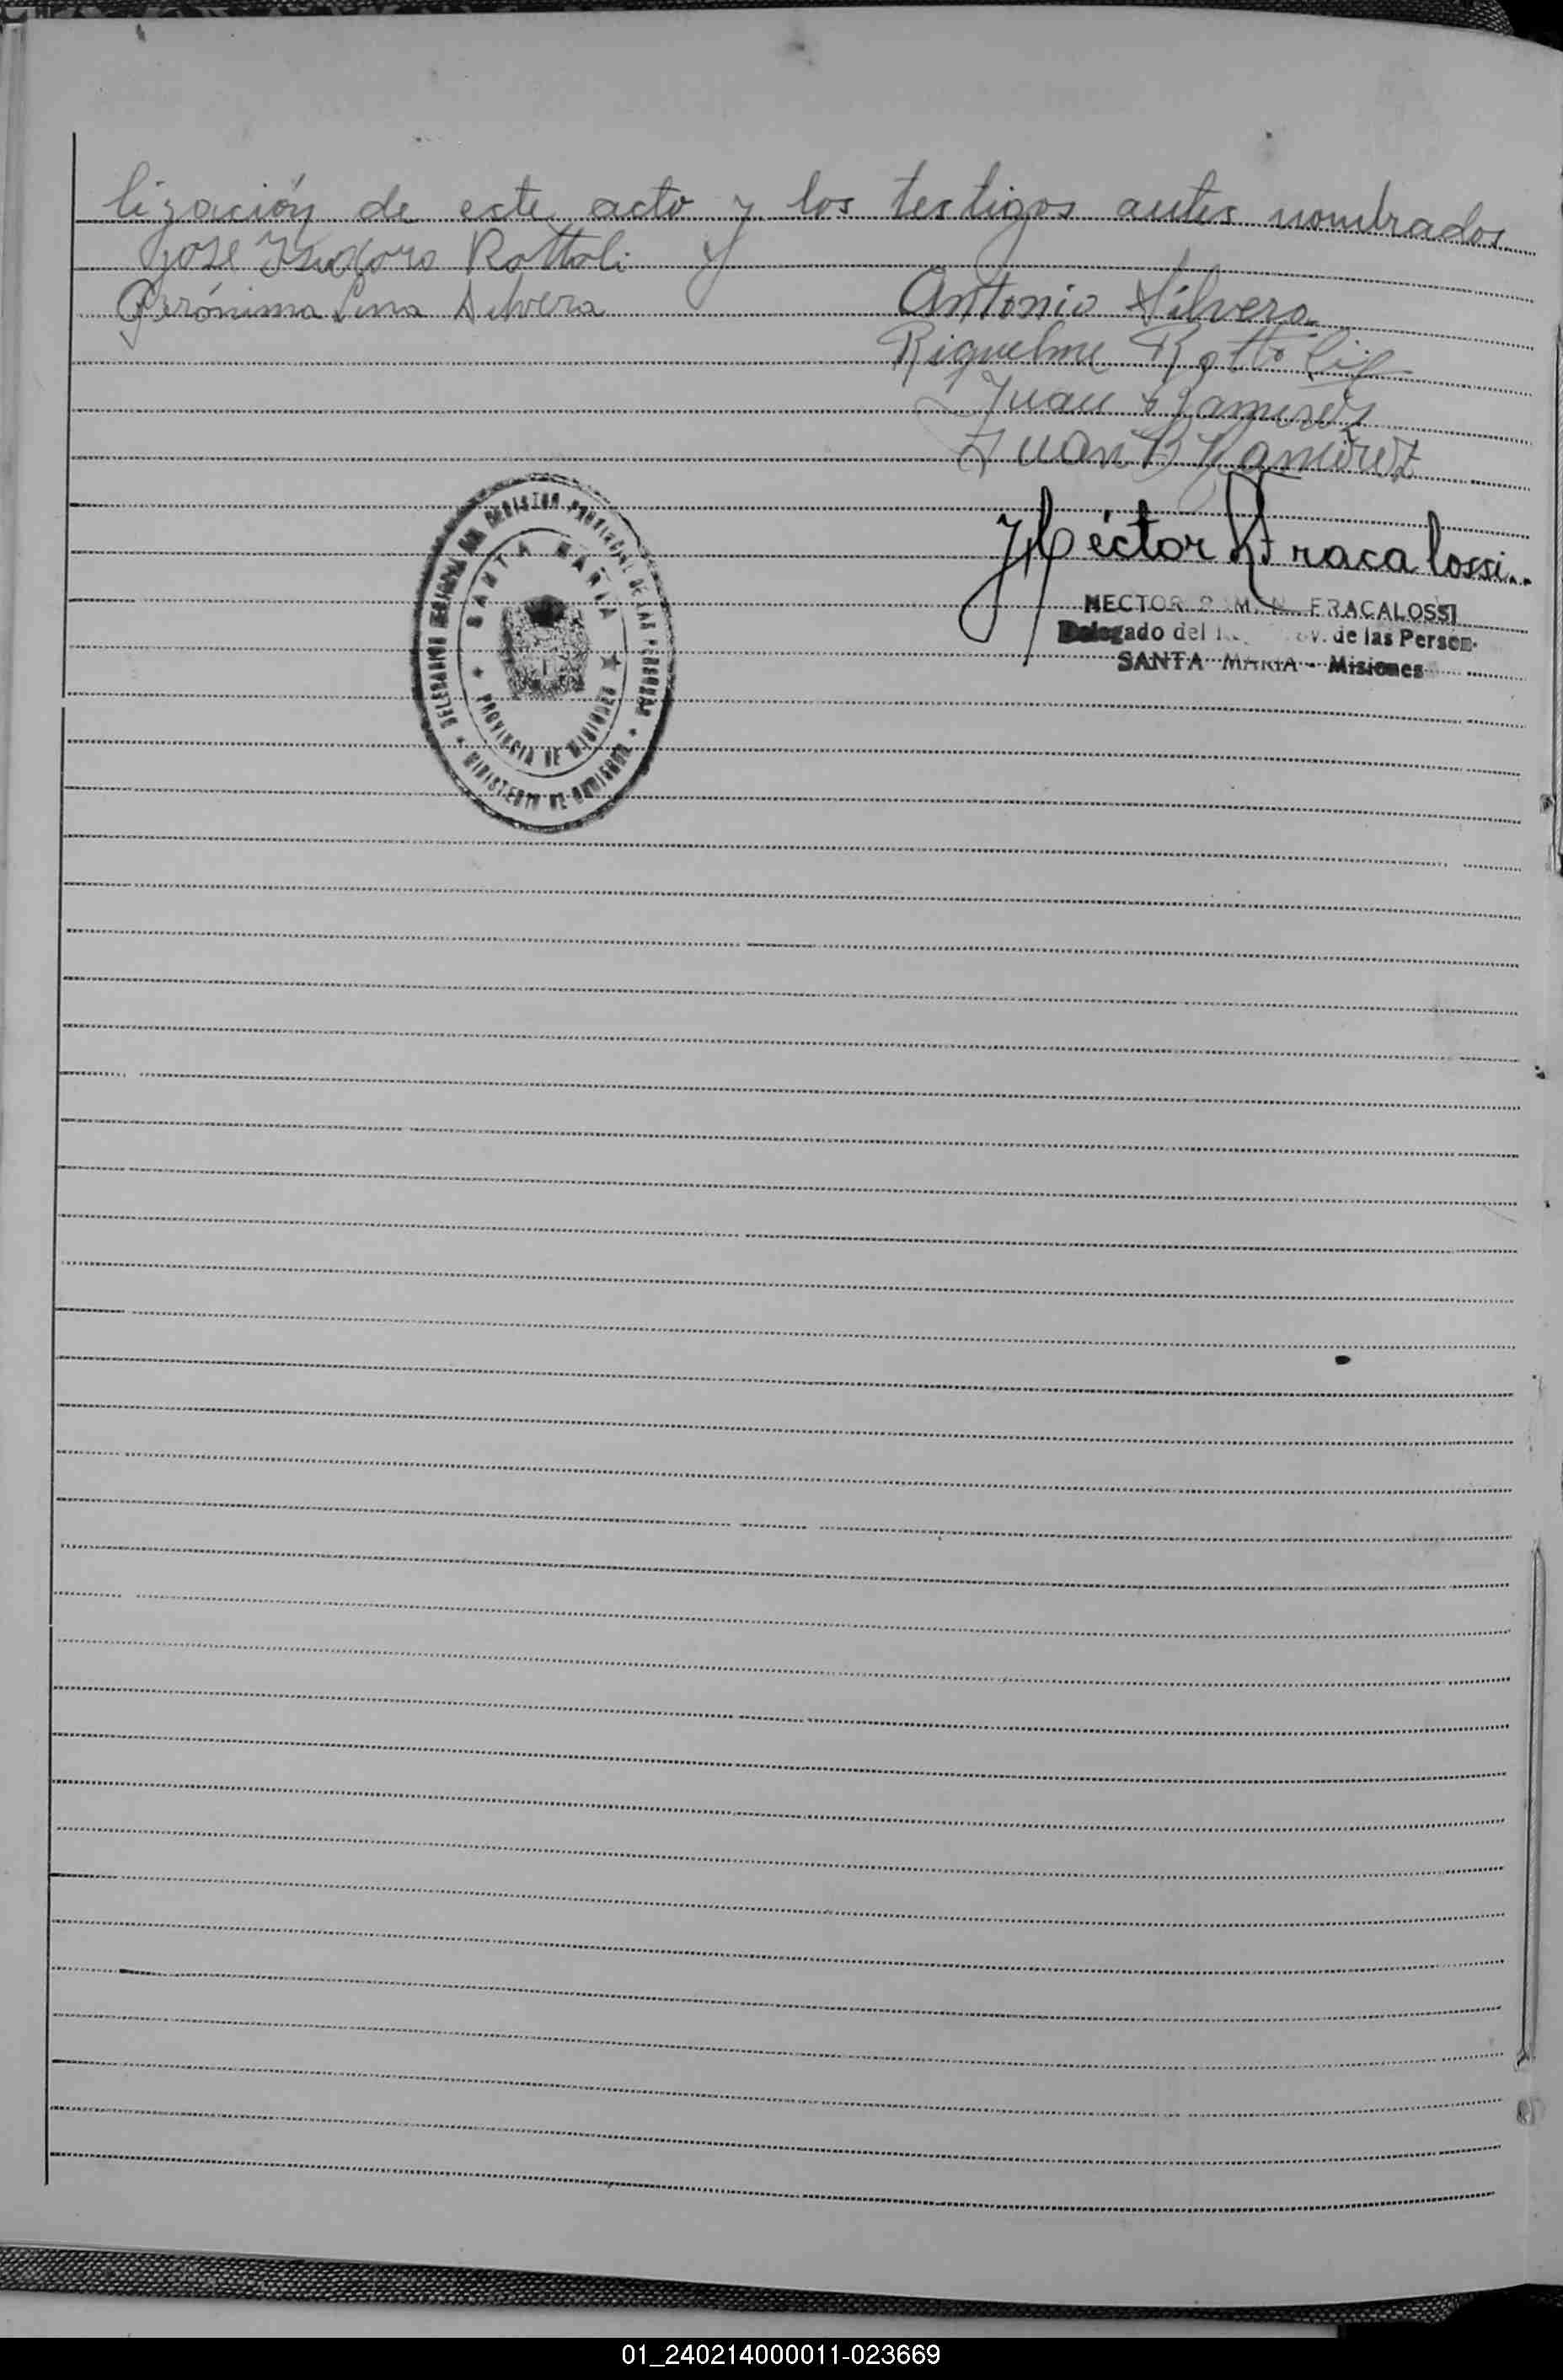 lización de este acto y los testigos antes nombrados
Jose Isidoro Rottoli y
Gerónima Lina Silvera
Antonio Silvera
Riquelme Rottoli
Juan Ramirez
Juan B Ramirez
Héctor R Fracalossi
HECTOR FRACALOSSI
Delegado del de las Person.
SANTA MARIA - Misiones
REGISTRO PROVINCIAL DE LAS PERSONAS
SANTA MARIA
PROVINCIA DE MISIONES
MINISTERIO DE GOBIERNO
01_240214000011-023669